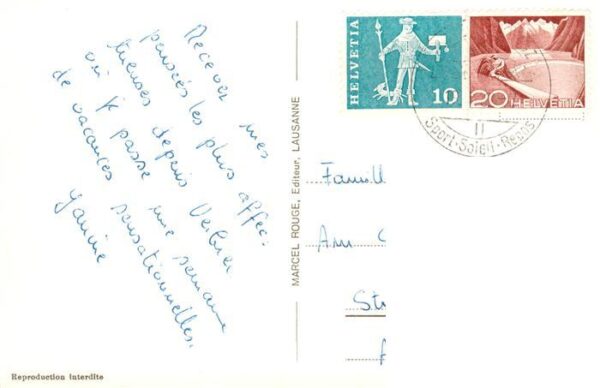 Recevez mes
pensées les plus affec-
tueuses depuis Verbier
où je passe une semaine
de vacances sensationnelles.
Yanine
MARCEL ROUGE, Editeur, LAUSANNE
HELVETIA
10
20 HELVETIA
II
Sport-Soleil-Repos
Famill
Am
St
Reproduction interdite